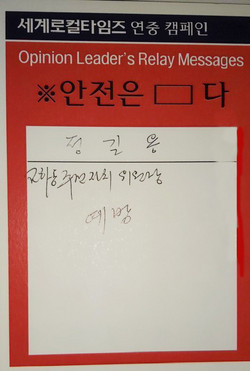 세계로컬타임즈 연중 캠페인
Opinion Leader's Relay Messages
※안전은 □ 다
정 길 용
주민자치 위원장
예방